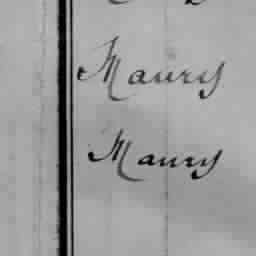 Maury
Maury